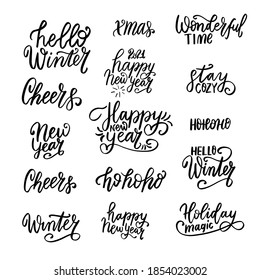 hello
Winter
Cheers
New
Year
Cheers
Winter
X'mas
2021
happy
New Year
Happy
NEW
YEAR
hohoho
happy
New Year
Wonderful
TIME
stay
COZY
HOHOHO
HELLO
Winter
Holiday
magic
shutterstock
IMAGE ID: 1854023002
www.shutterstock.com